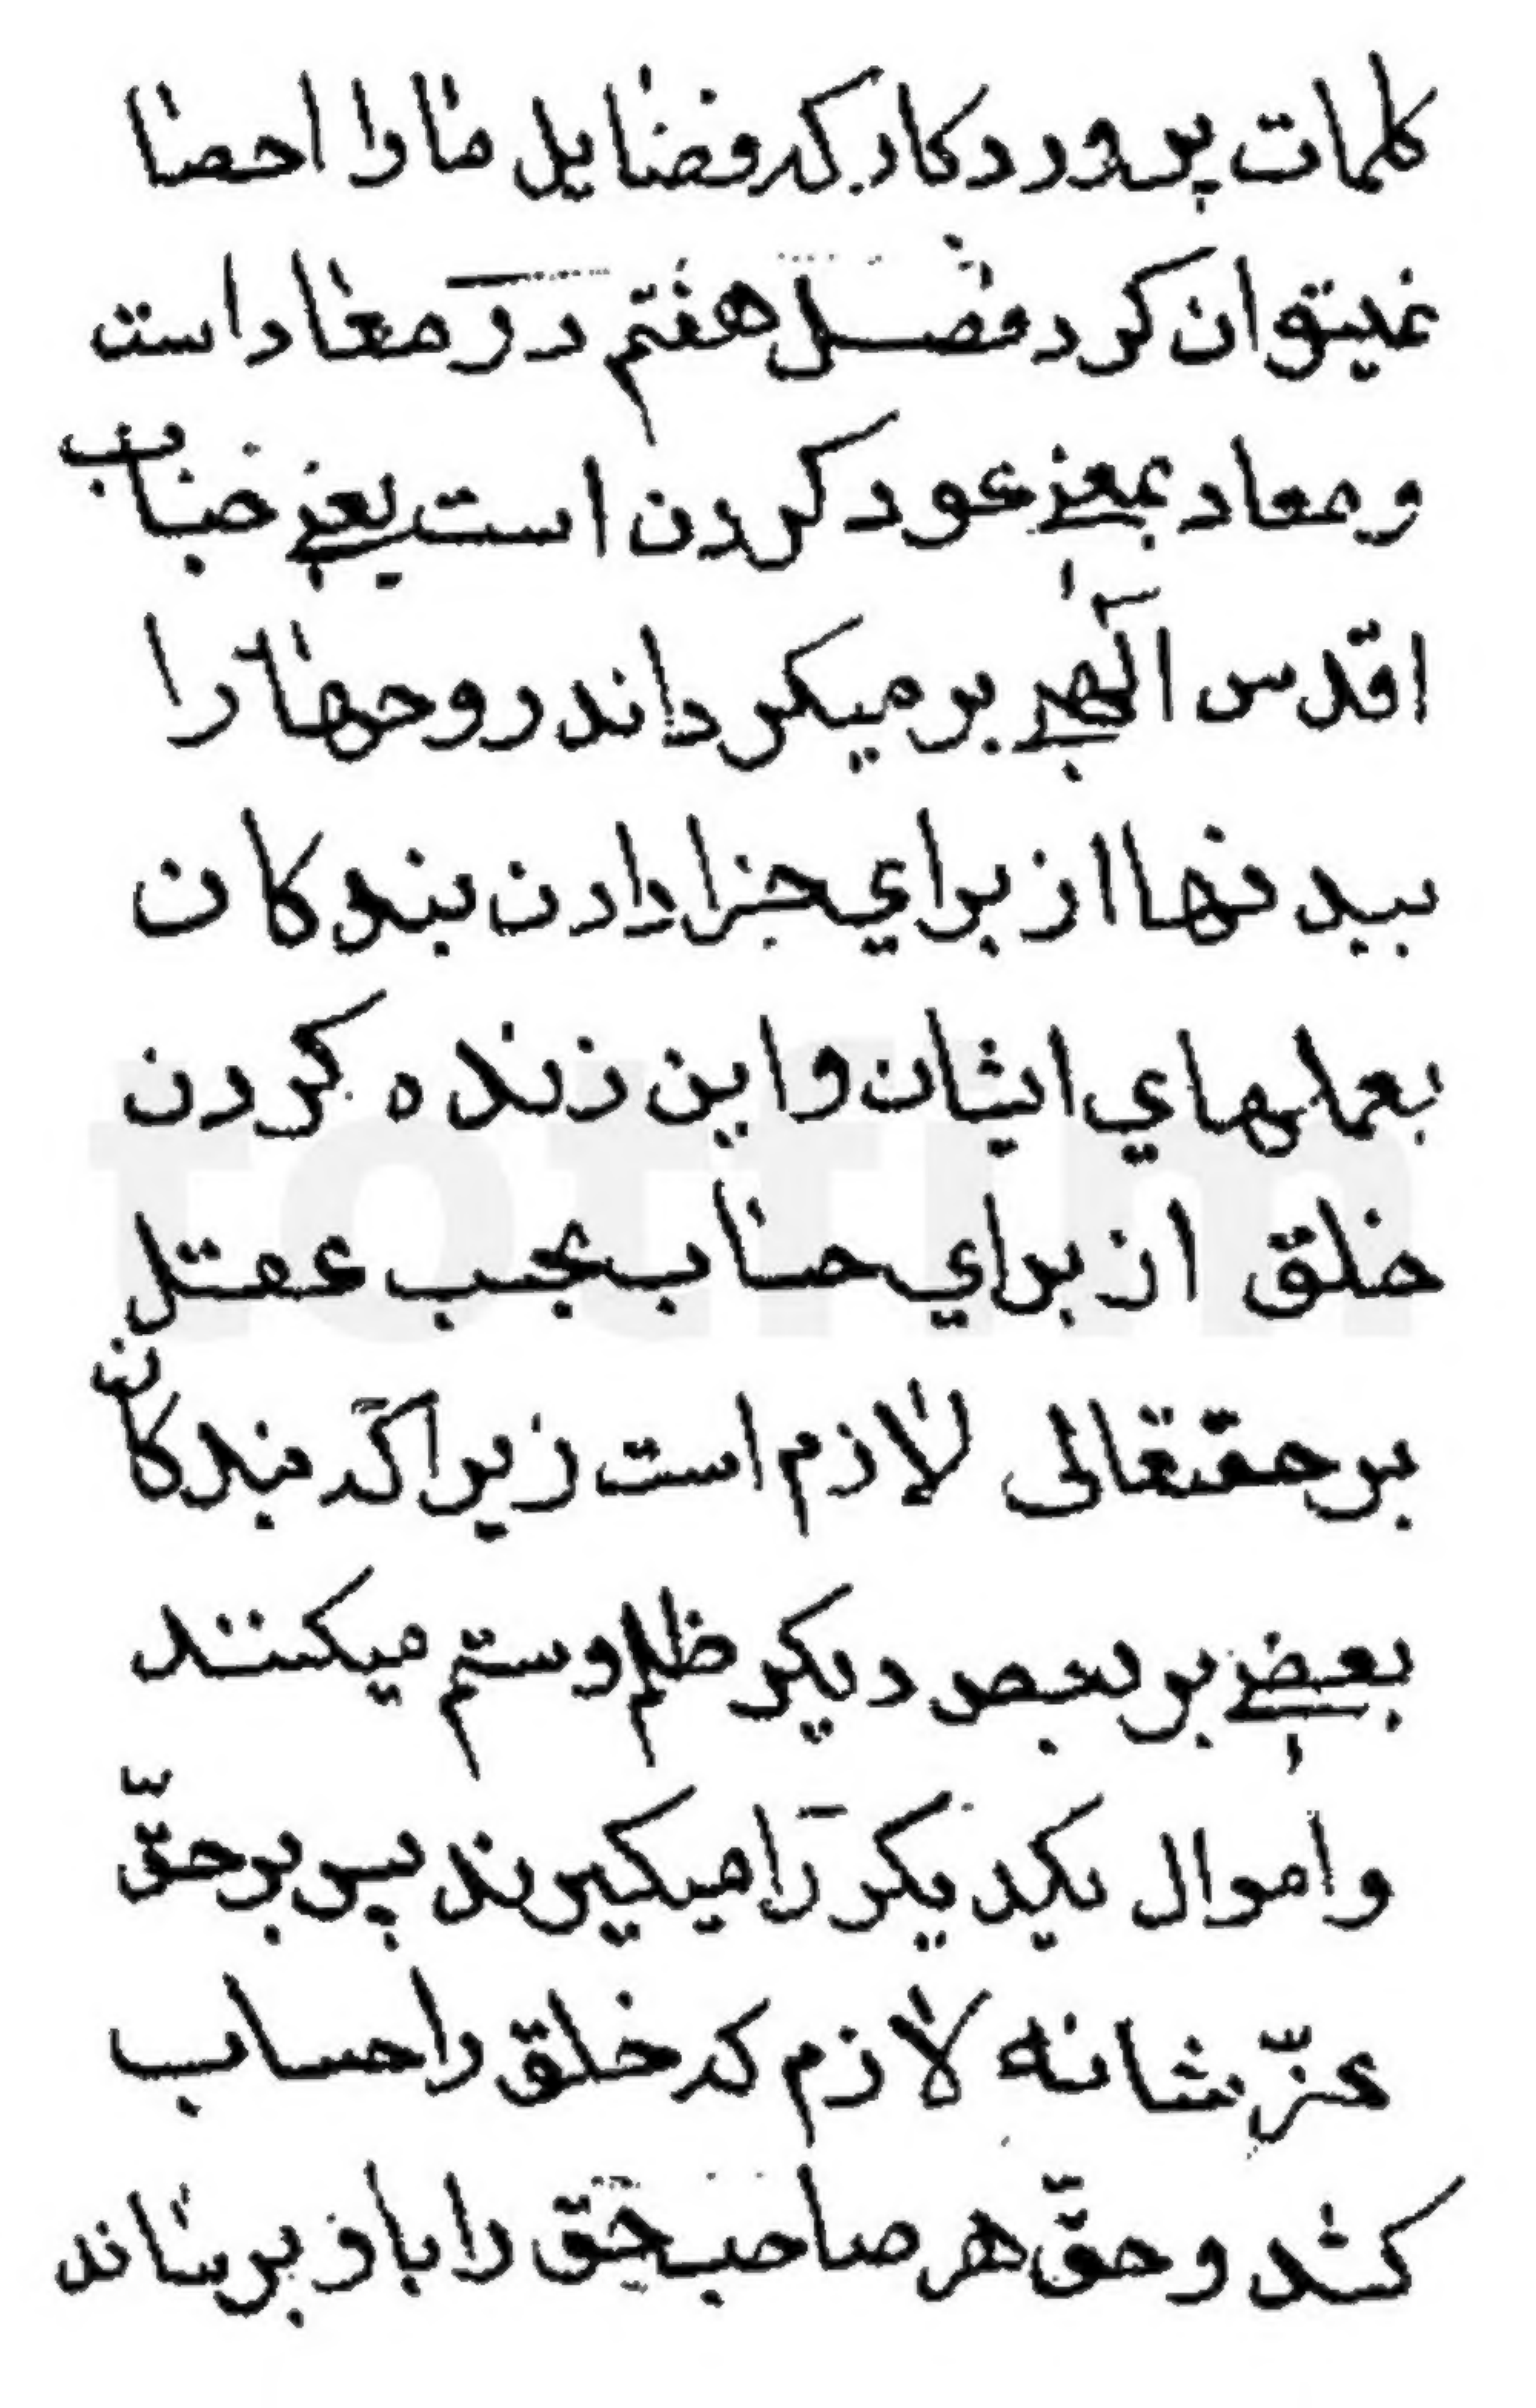 کلمات پروردکار که فضایل ما را احصا
نمیتوان کرد فصل هفتم در معاد است
و معاد بمعنی عود کردن است یعنی جناب
اقدس الهی بر میکرداند روحها را
ببدنها از برای جزا دادن بندکان
بعملهای ایشان و این زنده کردن
خلق از برای حساب بحسب عقل
بر حقتعالی لازم است زیرا که بندکان
بعضی بر بعض دیکر ظلم و ستم میکنند
و اموال یکدیکر را میکیرند پس بر حقّ
عزّ شانه لازم که خلق را حساب
کند و حقّ هر صاحب حق را باو برساند
totfim